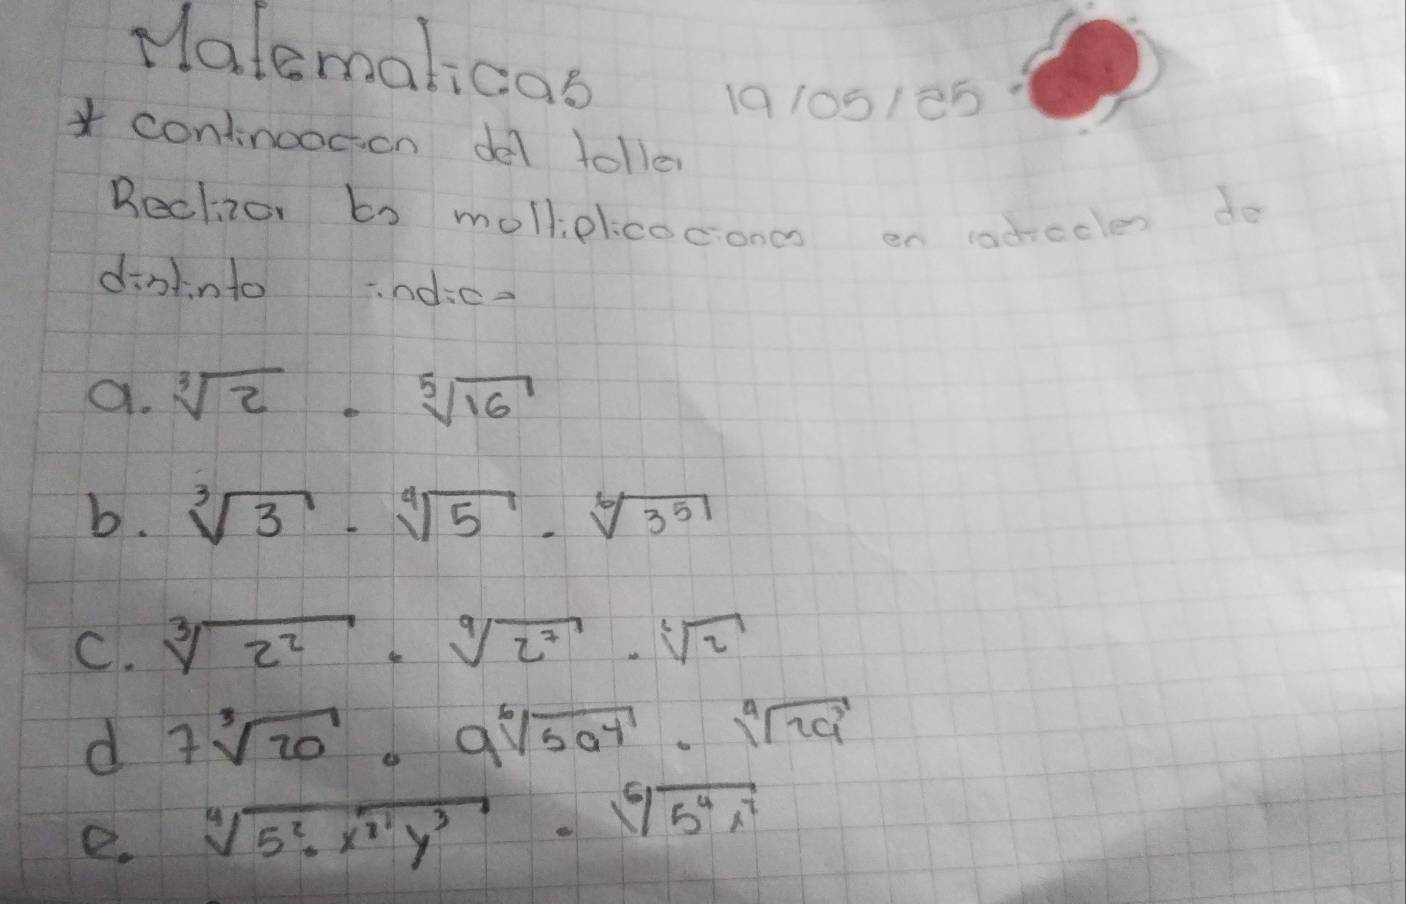 Matematicas 19/05/25
* continuacion del taller
Realizar las multiplicaciones en radicales de
distinto indice
a. ∛2 . ⁵√16
b. ∛3 . ⁴√5 . ⁶√3⁵
c. ∛2² . ⁹√2⁷ . √2
d 7∛20 . 9⁶√5a⁴ . ⁴√2a³
e. ⁴√5².x²y³ . ⁶√5⁴x⁷